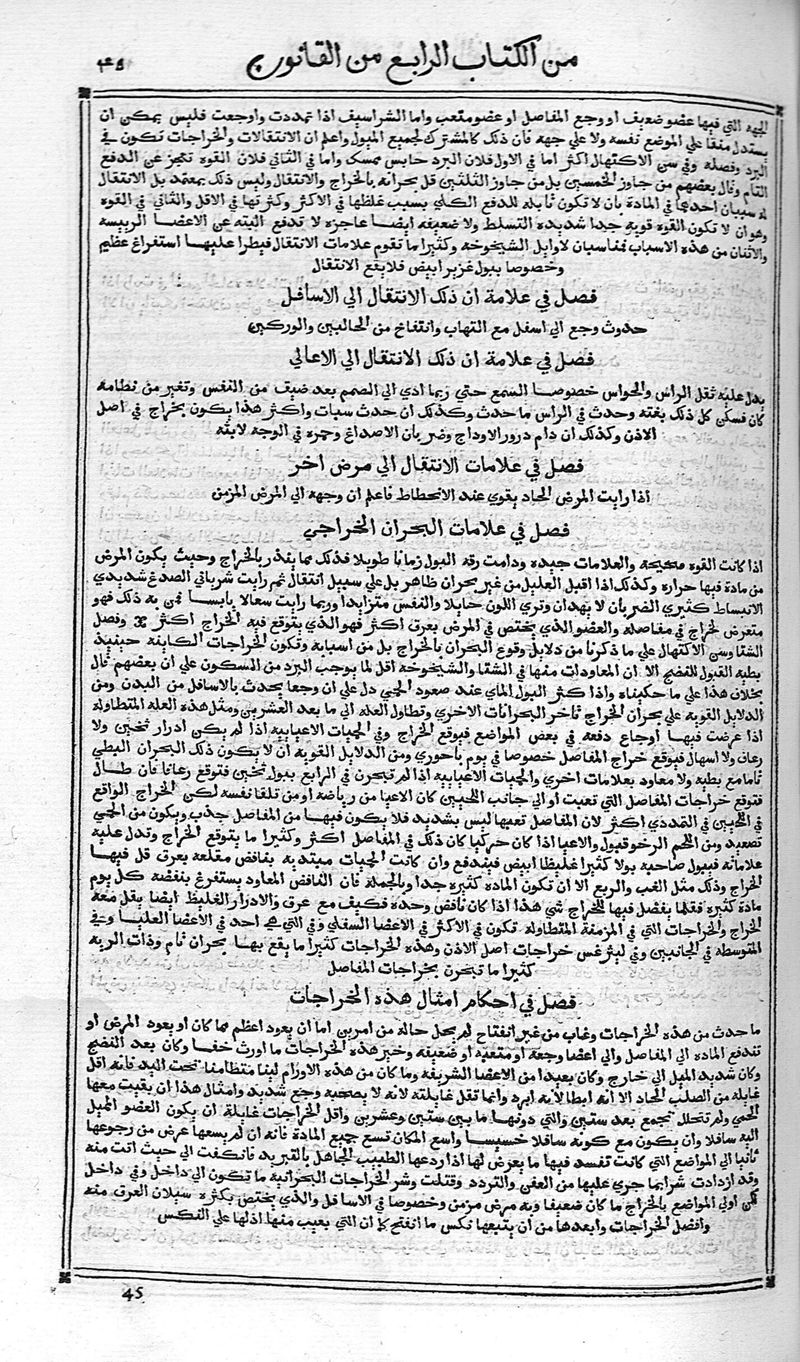 من الكتاب الرابع من القانون
٤٥
الجهه التي فيها عضو ضعيف او وجع المفاصل او عضو متعب واما الشراسيف اذا تمددت واوجعت فليس يمكن ان
يستدل منها علي الموضع نفسه ولا علي جهه فان ذلك كالمشترك لجميع الميول واعلم ان الانتقالات والخراجات تكون في
البرد وفصله وفي سن الاكتهال اكثر اما في الاول فلان البرد حابس ممسك واما في الثاني فلان القوه تعجز عن الدفع
التام وقال بعضهم من جاوز الخمسين بل من جاوز الثلثين قل بحرانه بالخراج والانتقال وليس ذلك بمعتمد بل الانتقال
له سببان احدهما في المادة بان لا تكون قابله للدفع الكلي بسبب غلظها في الاكثر وكثرتها في الاقل والثاني في القوه
وهو ان لا تكون القوه قويه جدا شديده التسلط ولا ضعيفه ايضا عاجزه لا تدفع البته عن الاعضا الرييسه
والاثنان من هذه الاسباب مناسبان لاوايل الشيخوخه وكثيرا ما تقوم علامات الانتقال فيطرا عليها استفراغ عظيم
وخصوصا ببول غزير ابيض فلا يقع الانتقال
فصل في علامة ان ذلك الانتقال الي الاسافل
حدوث وجع الي اسفل مع التهاب وانتفاخ من الحالبين والوركين
فصل في علامة ان ذلك الانتقال الي الاعالي
يدل عليه ثقل الراس والحواس خصوصا السمع حتي ربما ادي الي الصمم بعد ضيف من النفس وتغير من نظامه
كان فسكن كل ذلك بغته وحدث في الراس ما حدث وكذلك ان حدث سبات واكثر هذا يكون بخراج في اصل
الاذن وكذلك ان دام درور الاوداج وضربان الاصداغ وحمره في الوجه لابثه
فصل في علامات الانتقال الي مرض اخر
اذا رايت المرض الحاد يقوي عند الانحطاط فاعلم ان وجهه الي المرض المزمن
فصل في علامات البحران الخراجي
اذا كانت القوه صحيحه والعلامات جيده ودامت رقه البول زمانا طويلا فذلك مما ينذر بالخراج وحيث يكون المرض
من مادة فيها حراره وكذلك اذا اقبل العليل من غير بحران ظاهر بل علي سبيل انتقال ثم رايت شرياني الصدغ شديدي
الانبساط كثيري الضربان لا يهدان وتري اللون حايلا والنفس متزايدا وربما رايت سعالا يابسا فمن به ذلك فهو
متعرض لخراج في مفاصله والعضو الذي يختص في المرض بعرق اكثر فهو الذي يتوقع فيه الخراج اكثر وفصل
الشتا وسن الاكتهال علي ما ذكرنا من دلايل وقوع البحران بالخراج بل من اسبابه وتكون الخراجات الكاينه حينيذ
بطيه القبول للنضج الا ان المعاودات منها في الشتا والشيخوخه اقل لما يوجب البرد من السكون علي ان بعضهم قال
بخلاف هذا علي ما حكيناه واذا كثر البول الماي عند صعود الحمي دل علي ان وجعا يحدث بالاسافل من البدن ومن
الدلايل القويه علي بحران الخراج تاخر البحرانات الاخري وتطاول العله الي ما بعد العشرين ومثل هذه العله المتطاوله
اذا عرضت فيها اوجاع دفعه في بعض المواضع فيوقع الخراج وفي الحميات الاعياييه اذا لم يكن ادرار ثخين ولا
رعاف ولا اسهال فيوقع خراج المفاصل خصوصا في يوم باحوري ومن الدلايل القويه ان لا يكون ذلك البحران البطي
تاما مع بطيه ولا معاود بعلامات اخري والحميات الاعياييه اذا لم تبحرن في الرابع ببول ثخين فتوقع رعافا فان طال
فتوقع خراجات المفاصل التي تعبت او الي جانب اللحيين كان الاعيا من رياضه او من تلقا نفسه لكن الخراج الواقع
في اللحيين في التمددي اكثر لان المفاصل تعبها ليس بشديد فلا يكون فيها من المفاصل جذب ويكون من الحمي
تصعيد ومن اللحم الرخو قبول والاعيا اذا كان حركيا كان ذلك في المفاصل اكثر وكثيرا ما يتوقع الخراج وتدل عليه
علاماته فيبول صاحبه بولا كثيرا غليظا ابيض فيندفع وان كانت الحميات مبتديه بنافض مقلعه بعرق قل فيها
الخراج وذلك مثل الغب والربع الا ان تكون المادة كثيره جدا وبالجملة فان النافض المعاود يستفرغ بنفضه كل يوم
مادة كثيره فقلما يفضل فيها للخراج شي هذا اذا كان نافض وحده فكيف مع عرق والادرار الغليظ ايضا يقل معه
الخراج والخراجات التي في المزمنة المتطاوله تكون في الاكثر في الاعضا السفلي وفي التي هي احد في الاعضا العليا وفي
المتوسطه في الجانبين وفي ليثرغس خراجات اصل الاذن وهذه الخراجات كثيرا ما يقع بها بحران تام وذات الريه
كثيرا ما تبحرن بخراجات المفاصل
فصل في احكام امثال هذه الخراجات
ما حدث من هذه الخراجات وغاب من غير انفتاح لم يحل حاله من امرين اما ان يعود اعظم مما كان او يعود المرض او
تندفع المادة الي المفاصل والي اعضا وجعة او متعبه او ضعيفه وخير هذه الخراجات ما اورث خفا وكان بعد النضج
وكان شديد الميل الي خارج وكان بعيدا من الاعضا الشريفه وما كان من هذه الاورام لينا متطامنا تحت اليد فانه اقل
غايله من الصلب الحاد الا انه ابطا لانه ابرد وانما تقل غايلته لانه لا يصحبه وجع شديد وامثال هذا ان بقيت معها
الحمي ولم تتحلل تجمع بعد ستين والتي دونها ما بين ستين وعشرين واقل الخراجات غايلة ان يكون العضو المميل
اليه سافلا وان يكون مع كونه سافلا خسيسا واسع المكان تسع جميع المادة فانه ان لم يسعها عرض من رجوعها
ثانيا الي المواضع التي كانت تفسد فيها ما يعرض لها اذا ردعها الطبيب الجاهل بالتبريد فانكفت الي حيث اتت منه
وقد ازدادت شرا بما جري عليها من العفن والتردد وقتلت وشر الخراجات البحرانية ما تكون الي داخل وفي داخل
لكن اولي المواضع بالخراج ما كان ضعيفا وبه مرض مزمن وخصوصا في الاسافل والذي يختص بكثره سيلان العرق منه
وافضل الخراجات وابعدها من ان يتبعها نكس ما انفتح كما ان التي يغيب منها ادلها علي النكس
45